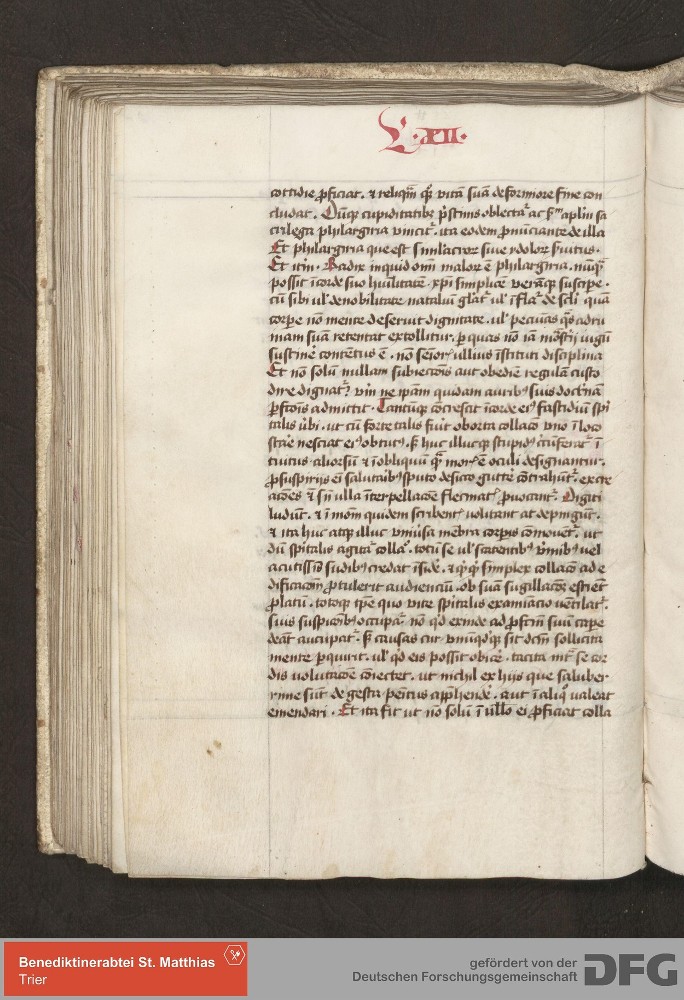 L · XII ·
cottidie ꝓficiat . & reliquā qꝫ vitā suā deformiore fine con
cludat . Cūqꝫ cupiditatibꝫ p̄stinis oblectat᷑ ac sm̄ aplm̄ sa
crilega philargiria vincit᷑ . ita eodem ꝓnūciante de illa
Et philargiria que est simlacroꝝ siue ydoloꝝ ẜuitus ·
Et itm̄ · Radix inquid om̄ malorꝫ ē philargiria . nūqꝫ
possit ī corde suo hūilitatē · xp̄i simplicē verāqꝫ suscipe ·
cū sibi ul' de nobilitate nataliū gl'at᷑ ul' īflat᷑ de scl'i quā
corpe nō mente deseruit dignitate . ul' pecunias qͣs ad rui
nam suā retentat extollitur . ꝑ quas nō iā mōstrij iugū
sustinē cōtentus ē . nō seniorꝭ ullius īstituti disciplina
Et nō solū nullam subiectiōis aut obediēn̄ regulā custo
dire dignat᷑ . vm̄ ne ip̄am quidam auribꝰ suis doctͥnā
ꝑfectōis admittit · Tantūqꝫ cōcrescit ī corde eiꝰ fastidiū spi
talis ūbi · ut cū forte talis fūit oborta collacō vno ī loco
stare nesciat eiꝰ obtutꝰ . sꝫ huc illucqꝫ stupidꝰ circūferat᷑ ī
tuitus . aliorsū & ī obliquū qͣ morꝭ ē oculi designantur .
ꝓ suspirijs eī salutaribꝰ sputo de sicco gutture cōtrahūt᷑ . excre
acōes & sn̄ ulla īterpellacōe flecmatꝭ ꝓuocant᷑ . Digiti
ludūt . & ī morē quidem scribentꝭ volitant at depingūt .
& ita huc atqꝫ illuc vniūsa mēbra corpis cōmouent᷑ . ut
dū spitalis agitat᷑ collaͦ . totū se ul' scatentibꝰ v̄mibꝰ uel
acutissīs sudibꝰ credat īsidē . & qꝫ qꝫ simplex collacō ad e
dificacōm ꝓtulerit audienciū . ob suā sugillacōꝫ estīet
ꝓlatū . totoqꝫ tp̄e quo vite spitalis examīacio uētilat᷑ .
suis suspiciōibꝰ occupatꝰ . nō qd exinde ad ꝓfectū suū cape
deat aucupat᷑ . sꝫ causas cur vnūqd'qꝫ sit dcm̄ sollicita
mente ꝑquirit . ul' qd' eis possit obicē . tacita int᷑ se cor
dis volutacōe cōiectet . ut nichil ex hijs que saluber
rime sūt digesta penitus app̄hende . aut ī aliqͦ valeat
emendari . Et ita fit ut nō solū ī ullo ei ꝓficiat colla
Benediktinerabtei St. Matthias
Trier
gefördert von der
Deutschen Forschungsgemeinschaft DFG